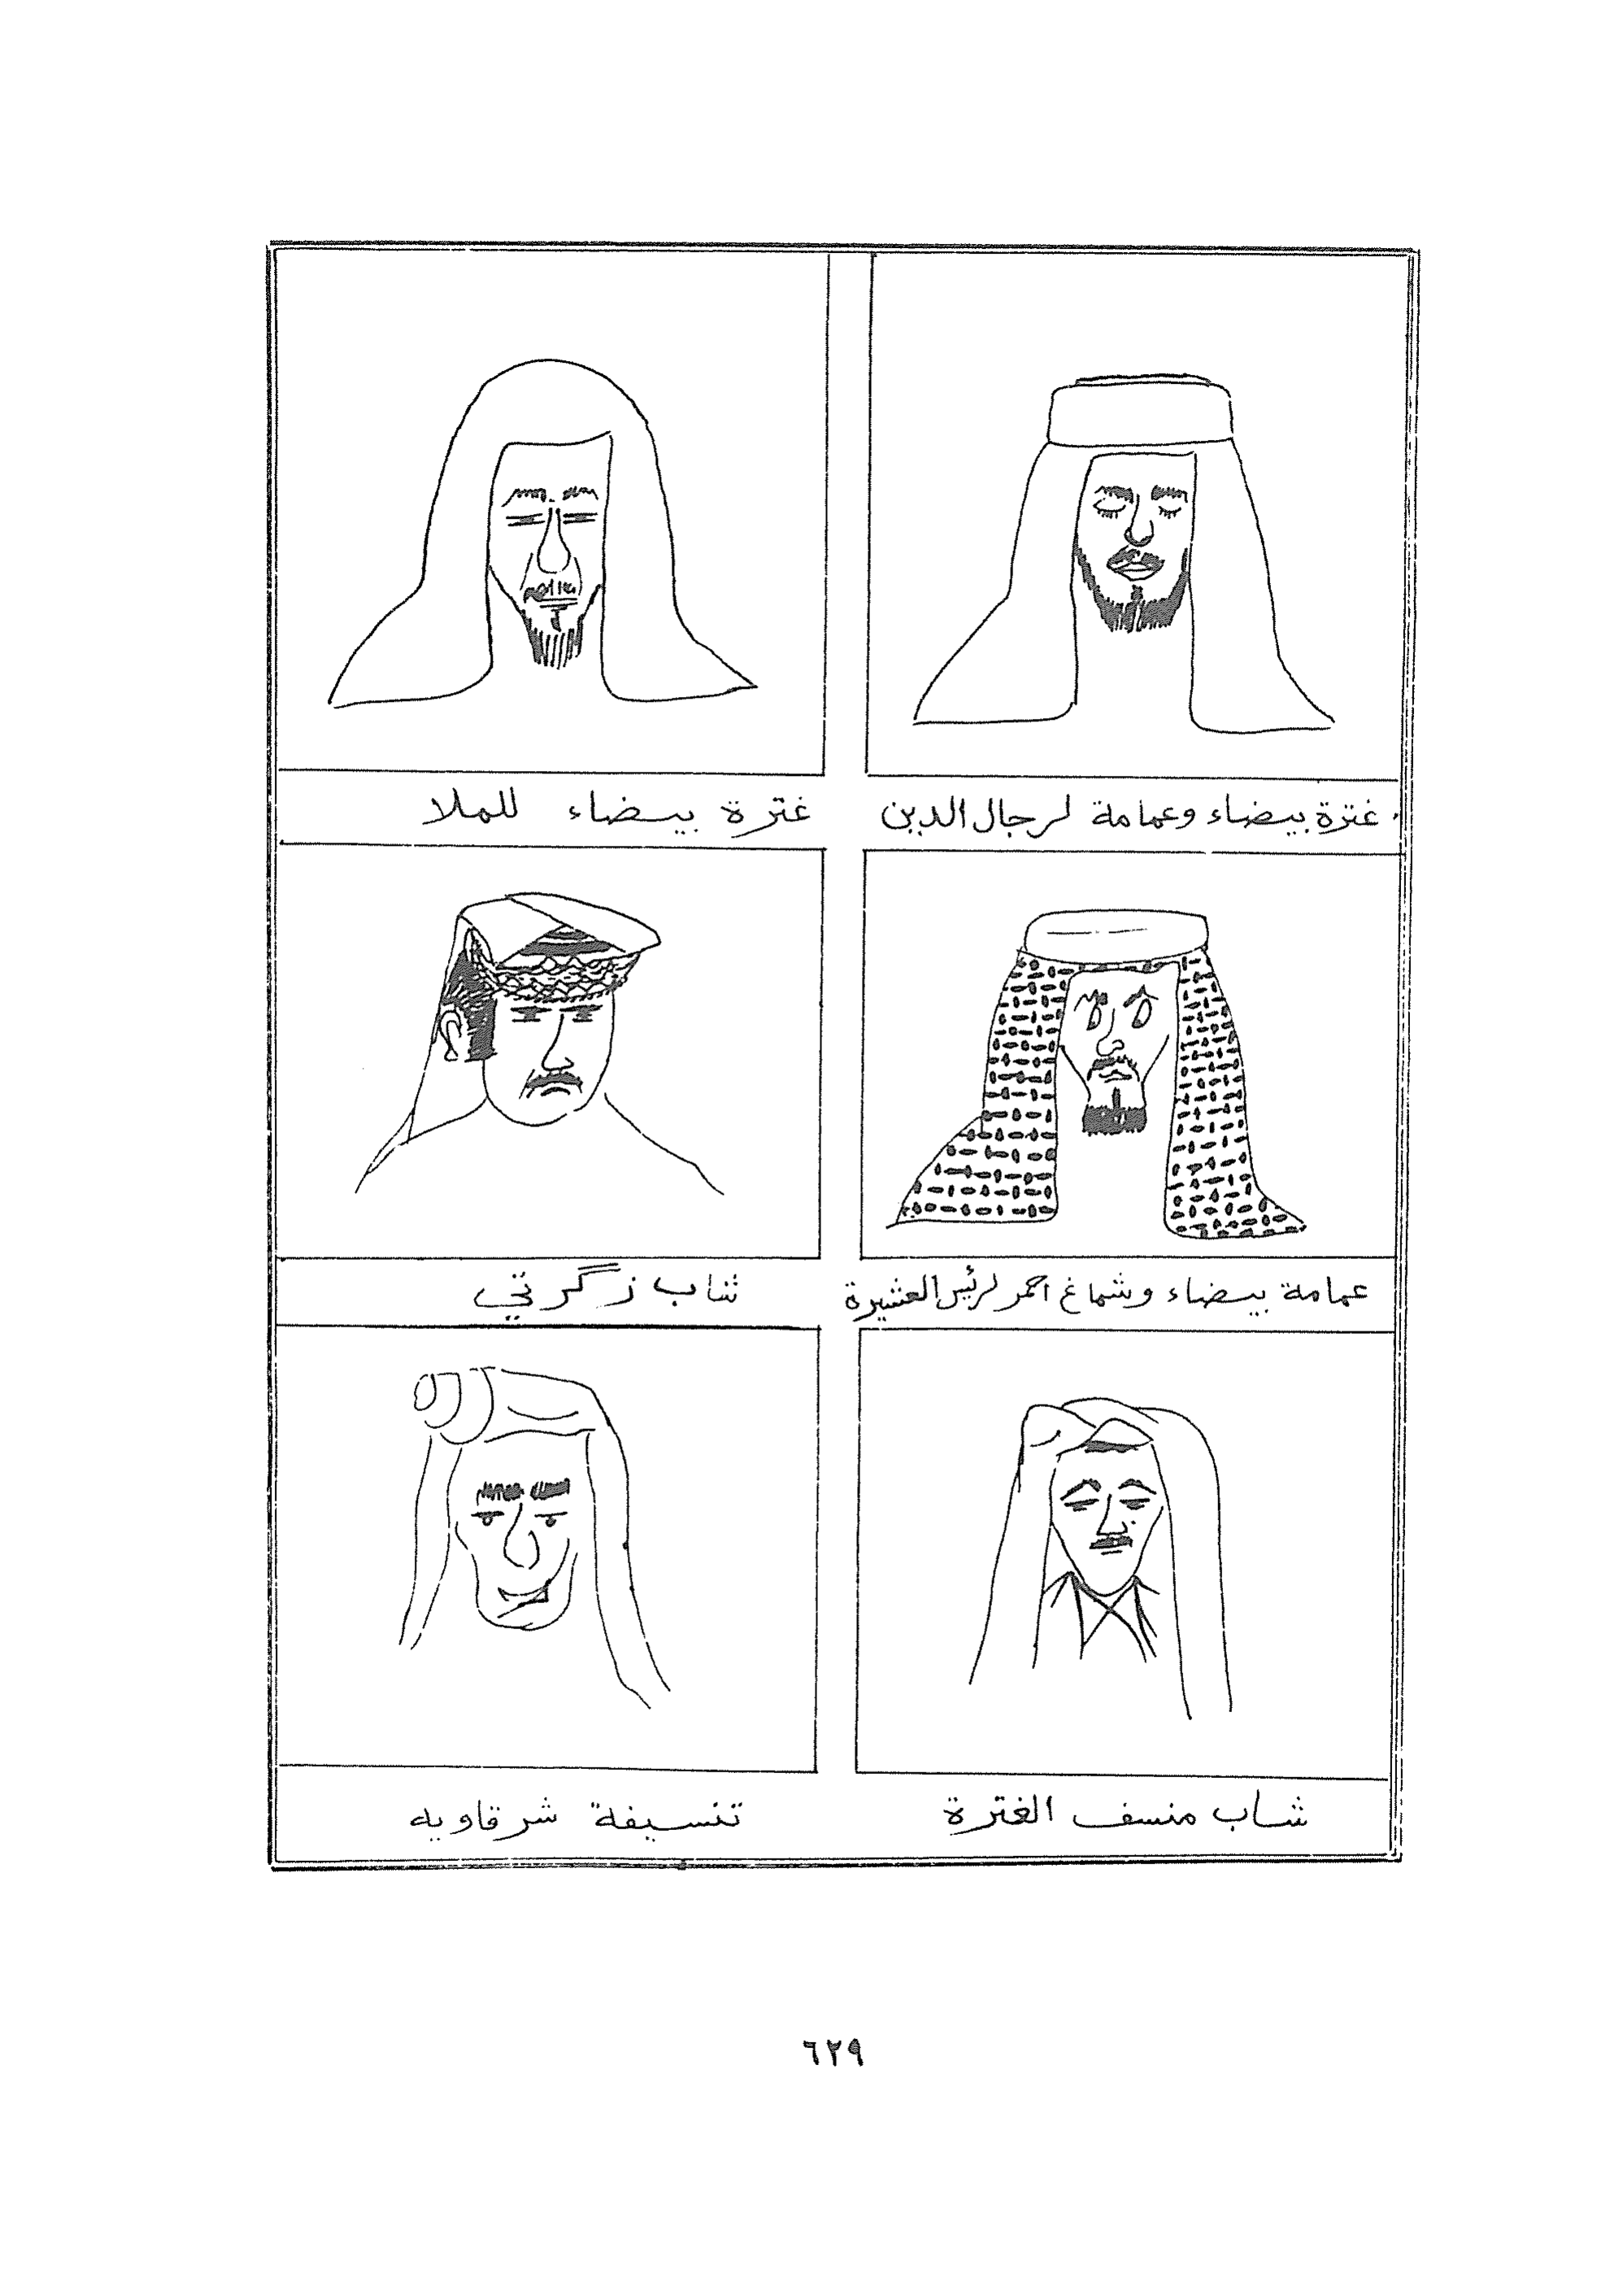 غترة بيضاء وعمامة لرجال الدين
غترة بيضاء للملا
عمامة بيضاء وشماغ احمر لرئيس العشيرة
شاب زگرتي
شاب منسف الغترة
تنسيفة شرقاويه
٦٢٩